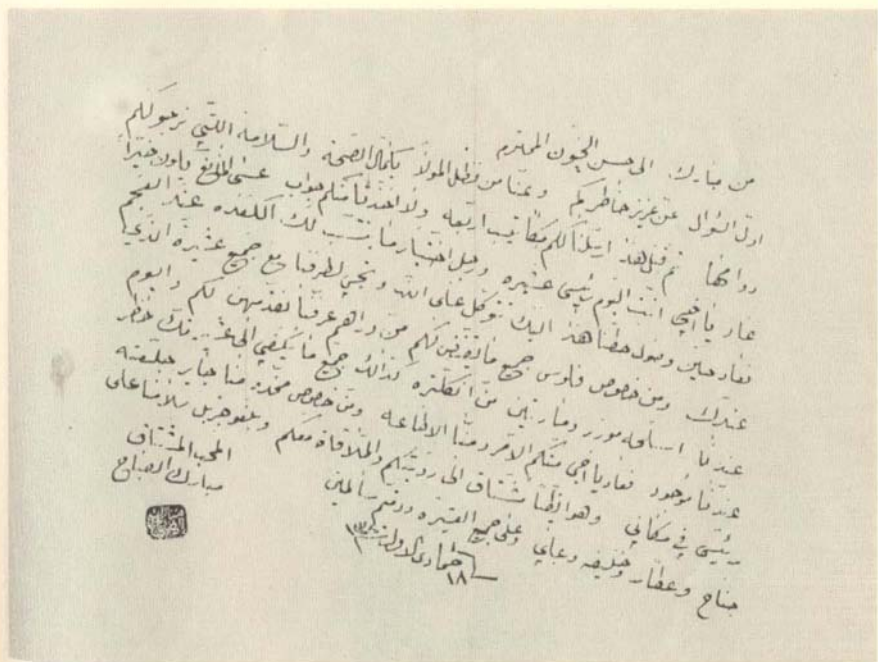 من مبارك الى حسن الخيون المحترم
اول السؤال عن عزيز خاطركم وعنا من فظل المولا بكمال الصحه والسلامه اللتي نرجو لكم
دوامها ثم قبل هذ ارسلنا لكم مكاتيب اربعه ولا اخذنا منكم جواب عسى المانع ياولد خيراً
عاد يا اخي انت اليوم رئيس عشيره ورجل اختيار ما يحسب لك الكفده عند العجم
فعاد حين وصول خطنا هذ اليك توكل على الله وتجي لطرفنا مع جميع عشيرة الذي
عندك ومن خصوص فلوس جميع ما لكم من دراهم عرفنا نقدمهن لكم واليوم
عندنا اسلحه موزر ومارتين من انكلتره كذالك جميع ما يكفي الى عشيرتك حظر
عندنا موجود فعاد يا اخي منكم الامر ومنا الاطاعه ومن خصوص محمد منا صاير
رئيس في مكاني وهو ايظاً مشتاق الى رويتكم والملاقاة معكم وبلغو جزيل سلامنا على
جناح وعطار وخليفه وعباي وعلى جميع العشيره ودمتم سالمين
المحب المشتاق
مبارك الصباح
١٨ جمادى الاول